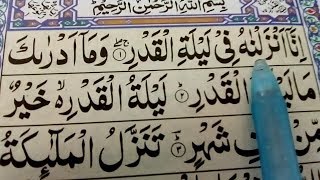 بِسْمِ اللّٰهِ الرَّحْمٰنِ الرَّحِيْمِ
اِنَّاۤ اَنْزَلْنٰهُ فِيْ لَيْلَةِ الْقَدْرِ ۚۖ ﴿۱﴾ وَمَاۤ اَدْرٰىكَ
مَا لَيْلَةُ الْقَدْرِ ؕ ﴿۲﴾ لَيْلَةُ الْقَدْرِ ۙ۬ خَيْرٌ
مِّنْ شَهْرٍ ؕ ﴿۳﴾ تَنَزَّلُ الْمَلٰٓئِكَةُ